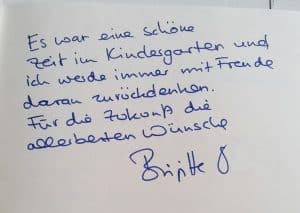 Es war eine schöne
Zeit im Kindergarten und
ich werde immer mit Freude
daran zurückdenken.
Für die Zukunft die
allerbesten Wünsche
Brigitte